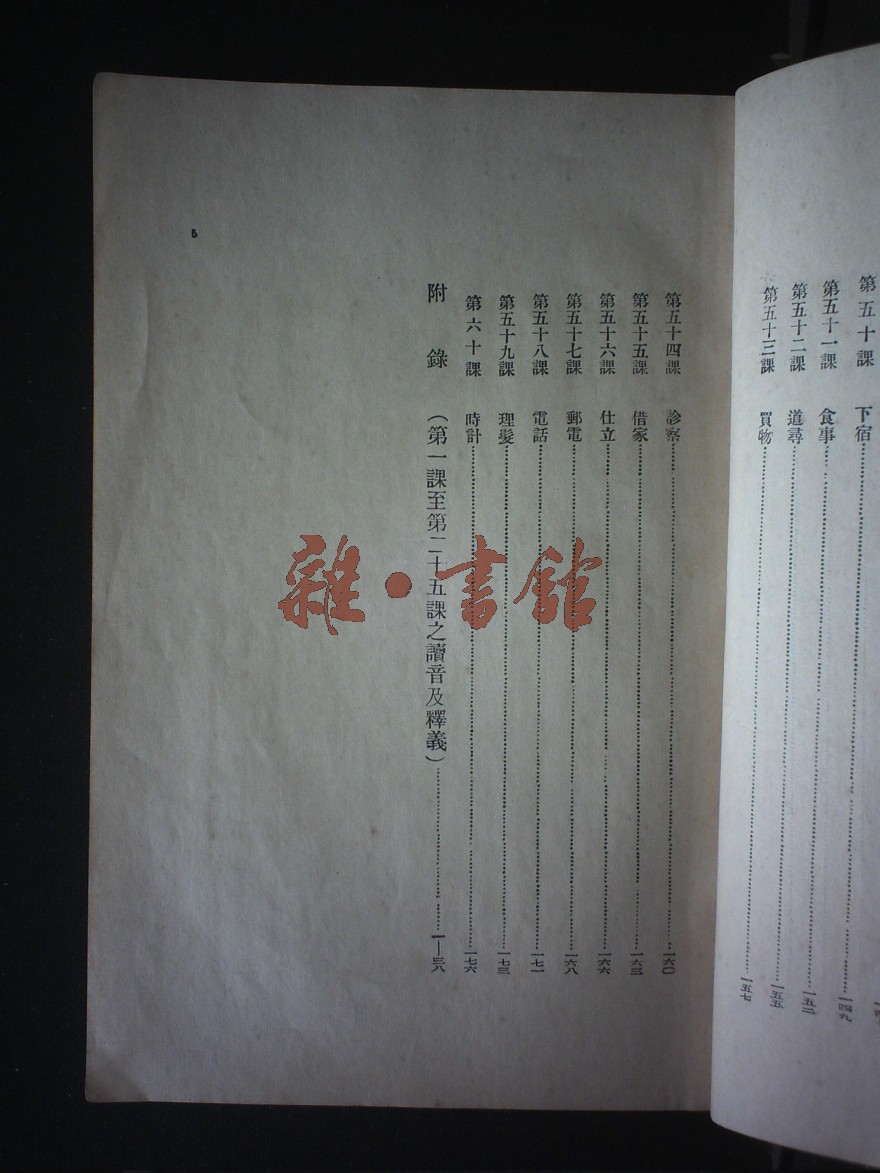 第五十課 下宿……一四九
第五十一課 食事……一五二
第五十二課 道尋……一五五
第五十三課 買物……一五七
第五十四課 診察……一六〇
第五十五課 借家……一六三
第五十六課 仕立……一六六
第五十七課 郵電……一六八
第五十八課 電話……一七一
第五十九課 理髮……一七三
第六十課 時計……一七六
附錄（第一課至第二十五課之讀音及釋義）……一—三八
5
雜·書館